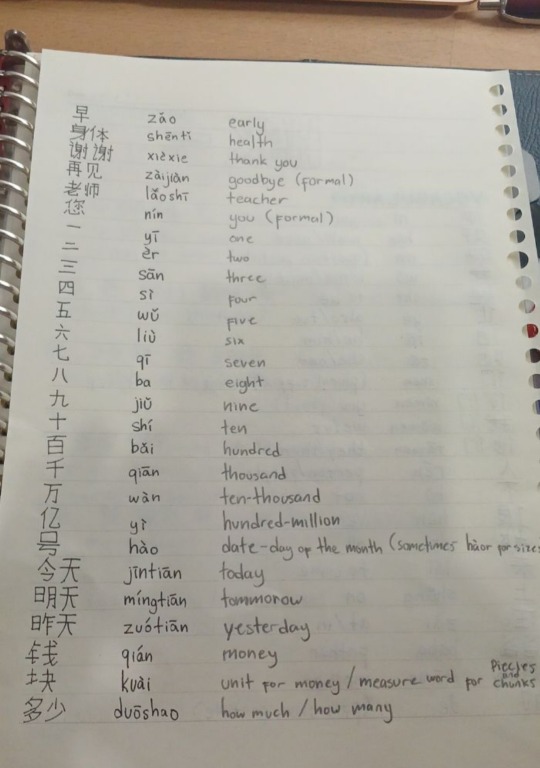 早 zǎo early
身体 shēntǐ health
谢谢 xièxie thank you
再见 zàijiàn goodbye (formal)
老师 lǎoshī teacher
您 nín you (formal)
一 yī one
二 èr two
三 sān three
四 sì four
五 wǔ five
六 liù six
七 qī seven
八 ba eight
九 jiǔ nine
十 shí ten
百 bǎi hundred
千 qiān thousand
万 wàn ten-thousand
亿 yì hundred-million
号 hào date-day of the month (sometimes hàor for sizes
今天 jīntiān today
明天 míngtiān tommorow
昨天 zuótiān yesterday
钱 qián money
块 kuài unit for money / measure word for piecles and chunks
多少 duōshao how much / how many